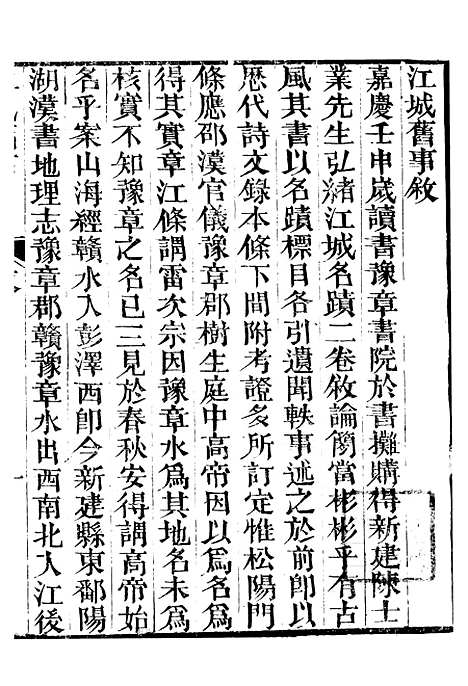 江城舊事敘
嘉慶壬申歲讀書豫章書院於書攤購得新建陳士
業先生弘緒江城名蹟二卷敘論簡當彬彬乎有古
風其書以名蹟標目各引遺聞軼事述之於前卽以
歷代詩文錄本條下間附考證多所訂定惟松陽門
條應邵漢官儀豫章郡樹生庭中高帝因以爲名爲
得其實章江條謂雷次宗因豫章水爲其地名未爲
核實不知豫章之名已三見於春秋安得謂高帝始
名乎案山海經贛水入彭澤西卽今新建縣東鄱陽
湖漢書地理志豫章郡贛豫章水出西南北入江後